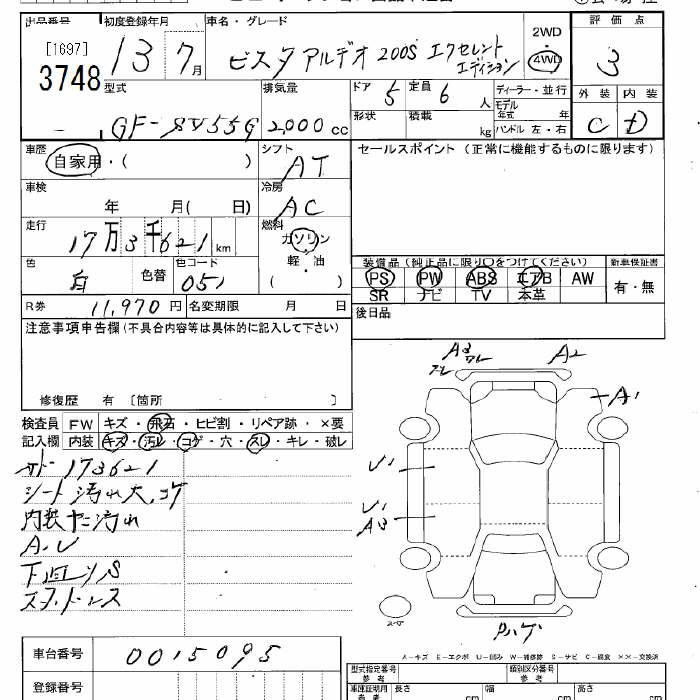 出品番号 初度登録年月 車名・グレード 2WD 評価点
[1697] 13 7月 ビスタアルデオ 200S エクセレント エディション 4WD 3
3748
型式 排気量 ドア 5 定員 6 人 ディーラー・並行 外装 内装
GF-SV55G 2,000 cc 形状 積載 kg モデル年式 年 C D
ハンドル 左・右
車歴 自家用・( ) シフト AT セールスポイント(正常に機能するものに限ります)
車検 年 月( 日) 冷房 AC
走行 17万3千621km 燃料 ガソリン
軽・油
( )
色 白 色替 色コード 051
装備品(純正品に限り○をつけてください) 新車保証書
PS PW ABS エアB AW 有・無
SR ナビ TV 本革
R券 11,970円 名変期限 月 日 後日品
注意事項申告欄(不具合内容等は具体的に記入して下さい)
修復歴 有 [箇所
検査員 FW キズ・飛石・ヒビ割・リペア跡・×要
記入欄 内装 キズ・汚レ・コゲ・穴・スレ・キレ・破レ
173621
シート汚れ大.コゲ
内装ヤニ汚れ
A.U
下回りS
スタッドレス
A3 ワレ A2
A1
U1
U1
A3
スペア
A-キズ E-エクボ U-凹み W-補修跡 S-サビ C-腐食 ××-交換済
車台番号 0015095
登録番号
型式指定番号 参考 類別区分番号 参考
車庫証明用 参考 長さ cm 幅 cm 高さ cm